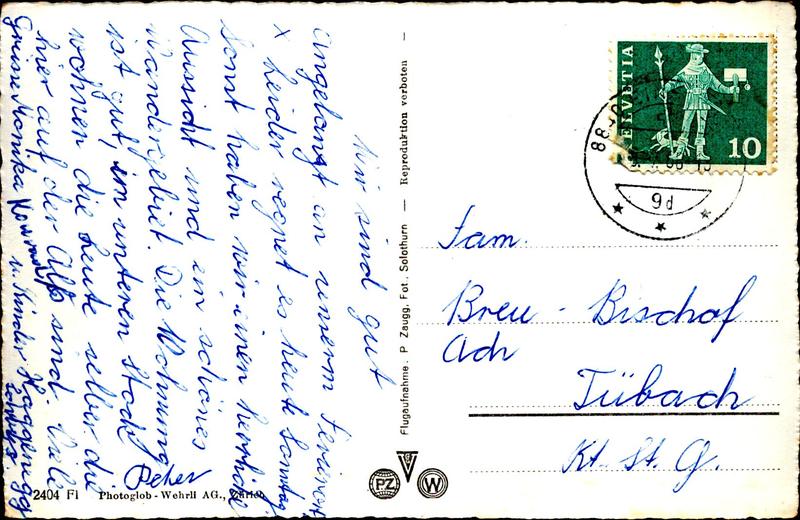 Wir sind gut
angelangt an unserm Ferienort
x Leider regnet es heute Sonntag
Sonst haben wir einen herrliche
Aussicht und ein schönes
Wandergebiet. Die Wohnung
ist gut, im unteren Stock
wohnen die Leute selber die
hier auf der Alp sind. Viele
Grüsse Monika Konrad
u. Kinder Haggenegg
Peter
2404 Fi Photoglob-Wehrli AG., Zürich
Flugaufnahme. P. Zaugg, Fot. Solothurn — Reproduktion verboten —
PZ
W
HELVETIA
10
9d
Fam.
Breu - Bischof
Ach
Tübach
Kt. St. G.